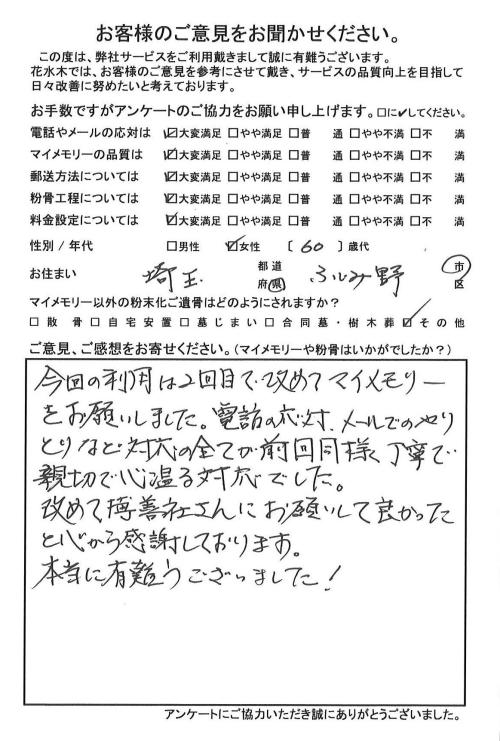 お客様のご意見をお聞かせください。
この度は、弊社サービスをご利用戴きまして誠に有難うございます。
花水木では、お客様のご意見を参考にさせて戴き、サービスの品質向上を目指して
日々改善に努めたいと考えております。
お手数ですがアンケートのご協力をお願い申し上げます。□に✓してください。
電話やメールの応対は ☑大変満足 □やや満足 □普 通 □やや不満 □不 満
マイメモリーの品質は ☑大変満足 □やや満足 □普 通 □やや不満 □不 満
郵送方法については ☑大変満足 □やや満足 □普 通 □やや不満 □不 満
粉骨工程については ☑大変満足 □やや満足 □普 通 □やや不満 □不 満
料金設定については ☑大変満足 □やや満足 □普 通 □やや不満 □不 満
性別 / 年代 □男性 ☑女性 〔 60 〕歳代
お住まい 埼玉 都道府県 ふじみ野 市区
マイメモリー以外の粉末化ご遺骨はどのようにされますか?
□散 骨 □自宅安置 □墓じまい □合同墓・樹木葬 ☑その他
ご意見、ご感想をお寄せください。(マイメモリーや粉骨はいかがでしたか?)
今回の利用は2回目で、改めてマイメモリー
をお願いしました。電話の応対、メールでのやり
とりなど対応の全てが前回同様、丁寧で
親切で心温る対応でした。
改めて博善社さんにお願いして良かった
と心から感謝しております。
本当に有難うございました!
アンケートにご協力いただき誠にありがとうございました。